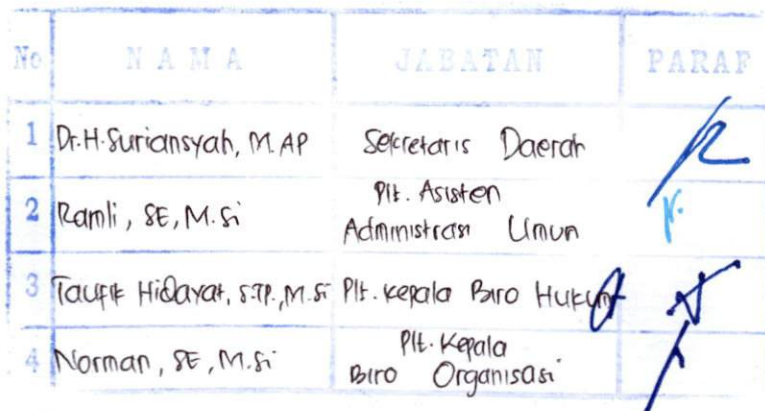 No N A M A JABATAN PARAF
1 Dr. H. Suriansyah, M. AP Sekretaris Daerah
2 Ramli, SE, M.Si Plt. Asisten
Administrasi Umun
3 Taufik Hidayat, S.TP., M.Si Plt. Kepala Biro Hukum
4 Norman, SE, M.Si Plt. Kepala
Biro Organisasi